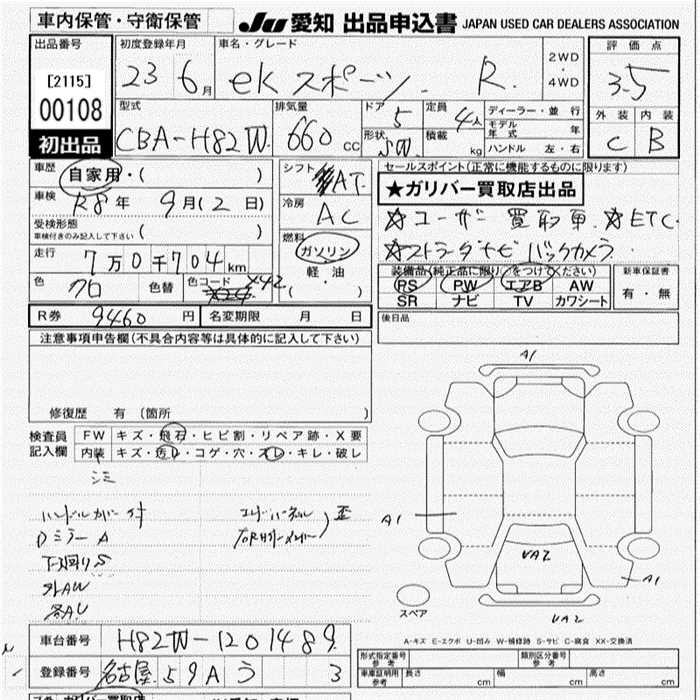 車内保管・守衛保管
JU 愛知 出品申込書 JAPAN USED CAR DEALERS ASSOCIATION
出品番号 初度登録年月 車名・グレード 評価点
[2115] 23 6月 ekスポーツ R. 2WD・4WD 3.5
00108 型式 排気量 ドア 5 定員 4人 ディーラー・並行 外装 内装
初出品 CBA-H82W 660cc 形状 SW 積載 kg モデル年式 年 C B
ハンドル 左・右
車歴 自家用・( ) シフト AT セールスポイント(正常に機能するものに限ります)
車検 R8年 9月(2日) 冷房 AC ★ガリバー買取店出品
受検形態 ( ) ☆ユーザー買取車 ☆ETC
車検付きのみ記入して下さい 燃料 ☆ストラーダナビ バックカメラ
走行 7万0千704km ガソリン・軽油 装備品(純正品に限り○をつけてください) 新車保証書
色 クロ 色替 色コード X42 ( ) PS PW エアB AW 有・無
SR ナビ TV カワシート
R券 9460円 名変期限 月 日 後日品
注意事項申告欄(不具合内容等は具体的に記入して下さい)
修復歴 有 (箇所 )
検査員記入欄 FW キズ・飛石・ヒビ割・リペア跡・X要
内装 キズ・汚レ・コゲ・穴・スレ・キレ・破レ
シミ
ハンドルカバー付
DミラーA
下廻りS
外AW
各A.U
歪
A1
A1
UA2
A1
UA2
スペア
A-キズ E-エクボ U-凹み W-補修跡 S-サビ C-腐食 XX-交換済
車台番号 H82W-1201489
登録番号 名古屋 59A う 3
形式指定番号 参考 類別区分番号 参考
車庫証明用 参考 長さ cm 幅 cm 高さ cm